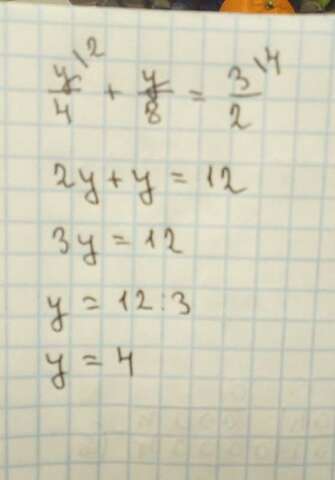 y/4 \2 + y/8 = 3/2 \4
2y + y = 12
3y = 12
y = 12 : 3
y = 4